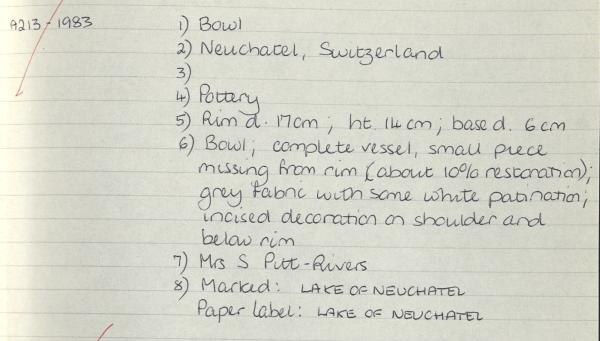 A213-1983
1) Bowl
2) Neuchatel, Switzerland
3)
4) Pottery
5) Rim d. 17cm; ht. 14cm; base d. 6cm
6) Bowl; complete vessel, small piece
missing from rim (about 10% restoration);
grey fabric with some white patination;
incised decoration on shoulder and
below rim
7) Mrs S Pitt-Rivers
8) Marked: LAKE OF NEUCHATEL
Paper label: LAKE OF NEUCHATEL